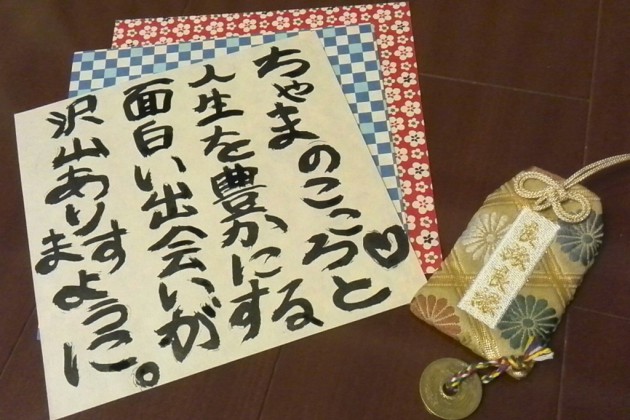 ちゃまのこころと
人生を豊かにする
面白い出会いが
沢山ありますように。
良縁